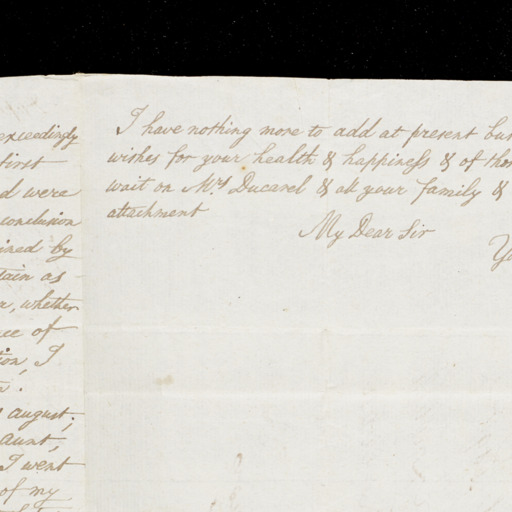 exceedingly
first
d were
conclusion
ined by
tain as
, whether
ce of
tion, I
august;
aunt,
I went
of my
I have nothing more to add at present but
wishes for your health & happiness & of thos
wait on Mrs Ducarel & all your family &
attachment
My Dear Sir
Yo